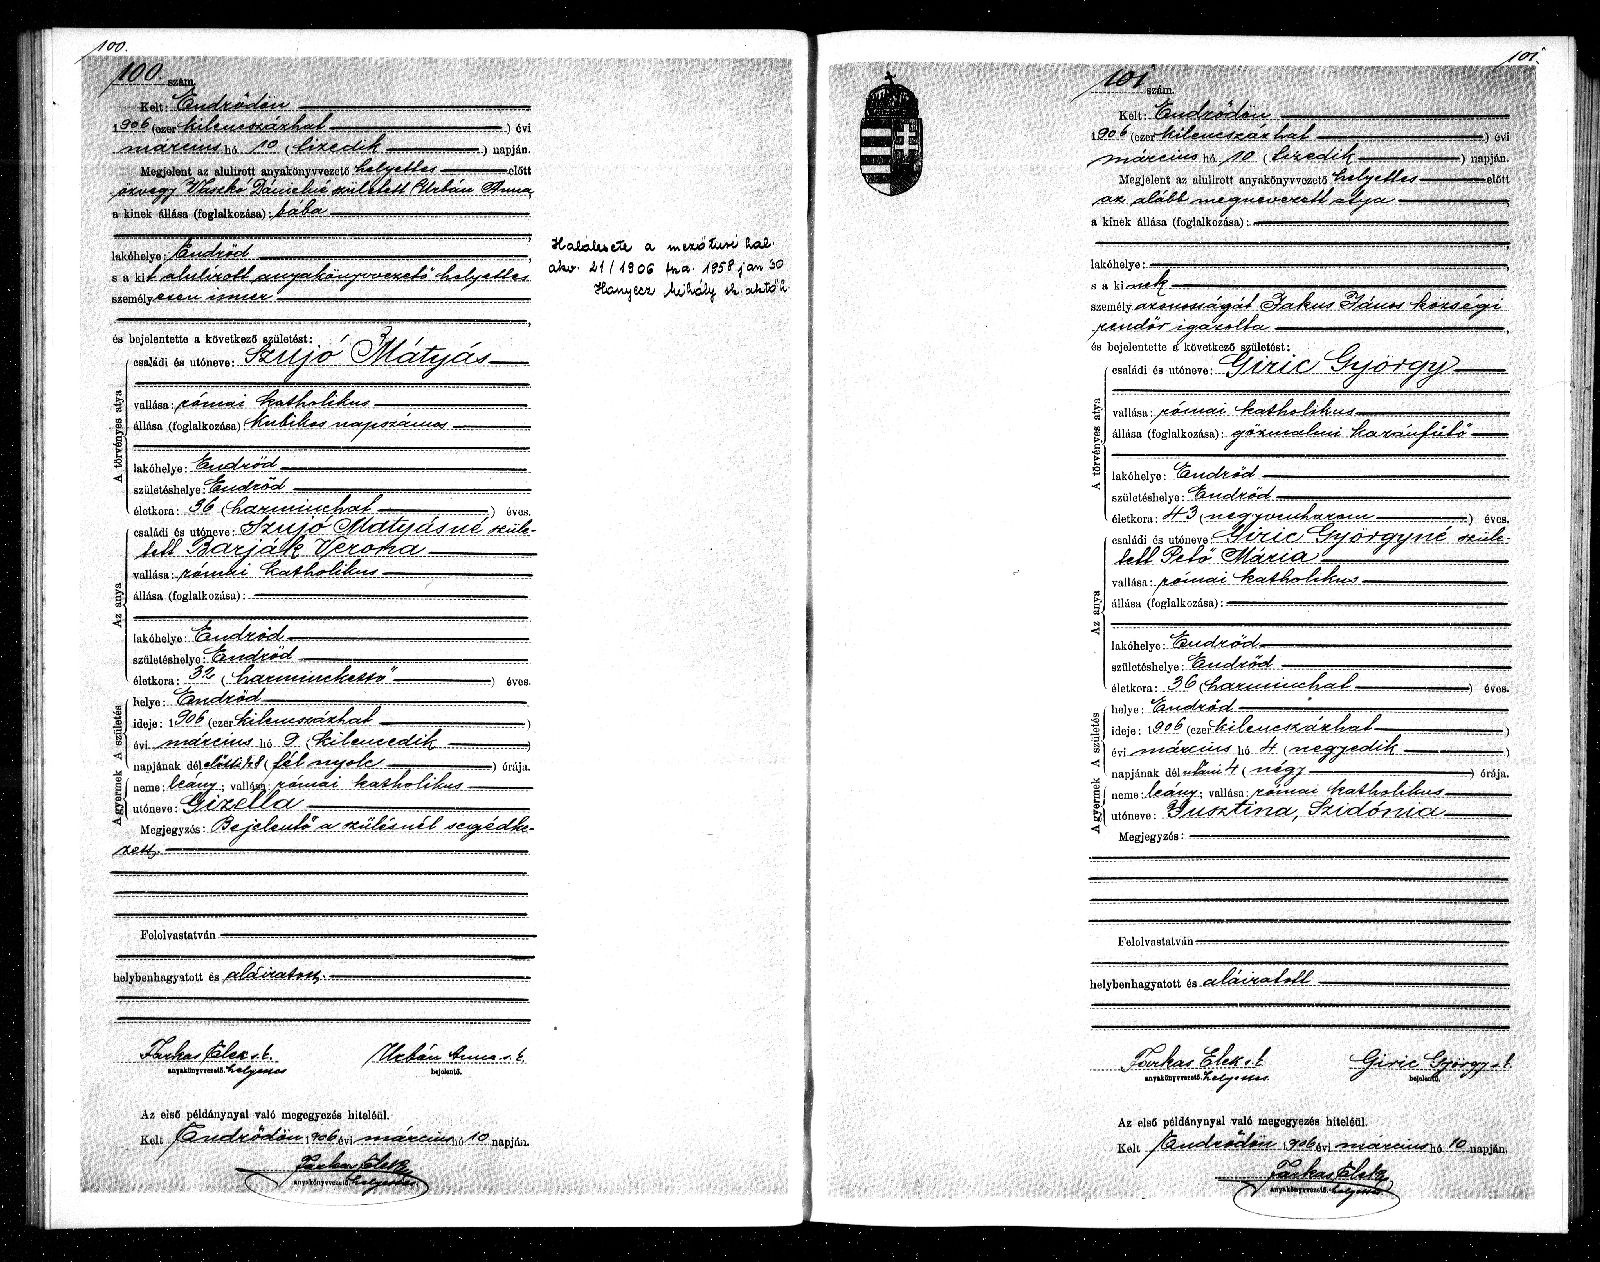 100.
100. szám.
Kelt: Endrődön
1906 (ezer kilenczszázhat) évi
március hó 10 (tizedik) napján.
Megjelent az alulirott anyakönyvvezető helyettes előtt
özvegy Vaskó Dánielné született Urbán Anna,
a kinek állása (foglalkozása): bába
lakóhelye: Endrőd
s a kit alulirott anyakönyvvezető helyettes
személyesen ismer
és bejelentette a következő születést:
A törvényes atya
családi és utóneve: Szujó Mátyás
vallása: római katholikus
állása (foglalkozása) kubikos napszámos
lakóhelye: Endrőd
születéshelye: Endrőd
életkora: 36 (harminchat) éves.
Az anya
családi és utóneve: Szujó Mátyásné szüle-
tett Barják Verona
vallása: római katholikus
állása (foglalkozása):
lakóhelye: Endrőd
születéshelye: Endrőd
életkora: 32 (harminckettő) éves.
A születés
helye: Endrőd
ideje: 1906 (ezer kilencszázhat)
évi március hó 9 (kilencedik)
napjának dél előtti ½8 (fél nyolc) órája.
A gyermek
neme: leány; vallása: római katholikus
utóneve: Gizella
Megjegyzés: Bejelentő a szülésnél segédke-
zett.
Felolvastatván
helybenhagyatott és aláiratott.
Farkas Elek s. k. Urbán Anna s. k.
anyakönyvvezető. helyettes bejelentő.
Az első példánynyal való megegyezés hiteléül.
Kelt Endrődön 1906 évi március hó 10 napján.
Farkas Elek
anyakönyvvezető. helyettes
Halálesete a mezőturi hal.
akv. 21/1906 1958 jan 30
Hanyecz Mihály sk.
101.
101 szám.
Kelt: Endrődön
1906 (ezer kilencszázhat) évi
március hó 10 (tizedik) napján.
Megjelent az alulirott anyakönyvvezető helyettes előtt
az alább megnevezett atya
a kinek állása (foglalkozása):
lakóhelye:
s a kinek
személy azonosságát Jakus János községi
rendőr igazolta
és bejelentette a következő születést:
A törvényes atya
családi és utóneve: Giric György
vallása: római katholikus
állása (foglalkozása): gőzmalmi kazánfűtő
lakóhelye: Endrőd
születéshelye: Endrőd
életkora: 43 (negyvenhárom) éves.
Az anya
családi és utóneve Giric Györgyné szüle-
tett Pető Mária
vallása: római katholikus
állása (foglalkozása):
lakóhelye: Endrőd
születéshelye: Endrőd
életkora: 36 (harminchat) éves.
A születés
helye: Endrőd
ideje: 1906 (ezer kilencszázhat)
évi március hó 4 (negyedik)
napjának dél utáni 4 (négy) órája.
A gyermek
neme: leány; vallása: római katholikus
utóneve: Jusztina, Szidónia
Megjegyzés:
Felolvastatván
helybenhagyatott és aláiratott
Farkas Elek s. k. Giric György s. k.
anyakönyvvezető. helyettes. bejelentő.
Az első példánynyal való megegyezés hiteléül.
Kelt Endrődön 1906 évi március hó 10 napján.
Farkas Elek
anyakönyvvezető. helyettes